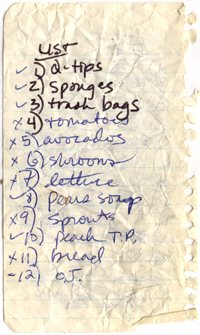 LIST
✓ 1) Q-tips
✓ 2) Sponges
✓ 3) trash bags
x 4) tomatoes
x 5) avocados
x 6) shrooms
x 7) lettuce
✓ 8) Pears soap
x 9) Sprouts
✓ 10) peach T.P.
x 11) bread
- 12) O.J.